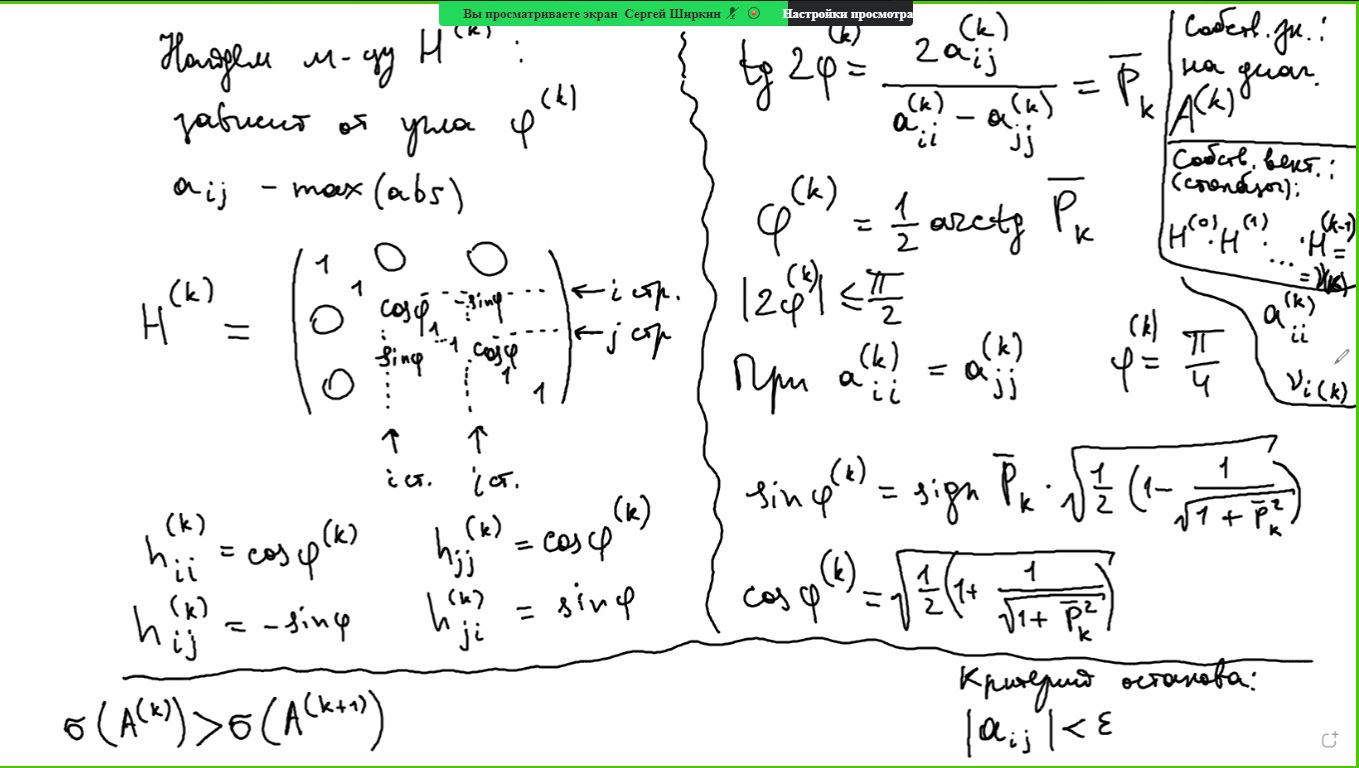 Вы просматриваете экран Сергей Ширкин
Настройки просмотра
Найдем м-цу H^(k) :
зависит от угла φ^(k)
a_ij - max(abs)
H^(k) =
1 0 0
1
0 cosφ -sinφ ← i стр.
1 ... 1
sinφ cosφ ← j стр
1
0 1
↑ ↑
i ст. j ст.
h_ii^(k) = cosφ^(k) h_jj^(k) = cosφ^(k)
h_ij^(k) = -sinφ h_ji^(k) = sinφ
tg 2φ^(k) = 2a_ij^(k) / (a_ii^(k) - a_jj^(k)) = P̅_k
φ^(k) = 1/2 arctg P̅_k
|2φ^(k)| ≤ π/2
При a_ii^(k) = a_jj^(k) φ^(k) = π/4
sinφ^(k) = sign P̅_k · √(1/2 (1 - 1/√(1 + P̅_k^2)))
cosφ^(k) = √(1/2 (1 + 1/√(1 + P̅_k^2)))
Собств. зн.:
на диаг.
A^(k)
Собств. вект.:
(столбцы):
H^(0) · H^(1) · ... · H^(k-1) =
a_ii^(k)
ν_i(k)
σ(A^(k)) > σ(A^(k+1))
Критерий останова:
|a_ij| < ε